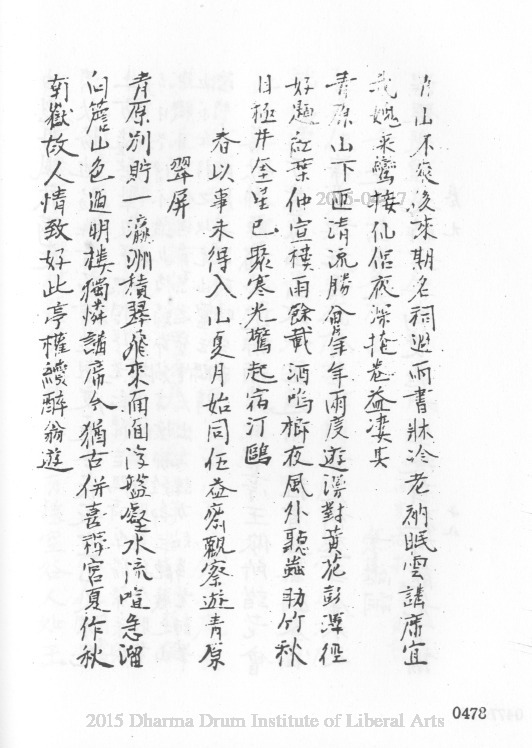 山不＿後來期名祠過雨書牀冷老衲眠雲講席宜
我媿乘鸞接仙侶夜深掩卷益凄其
青原山下匝清流勝＿年年兩度遊漫對黃花彭澤徑
好題紅葉仲宣樓雨餘載酒＿＿夜風外聽蟲助竹秋
目極井奎星已聚寒光驚起宿汀鷗
春以事未得入山夏月始同任益齋觀察遊青原
翠屏
青原別貯小瀛洲積翠飛來面面浮盤壑水流喧急溜
向簷山色過明樓獨憐講席今猶古併喜禪宮夏作秋
剌嶽故人情致好此亭權續醉翁遊
0478
2015 Dharma Drum Institute of Liberal Arts